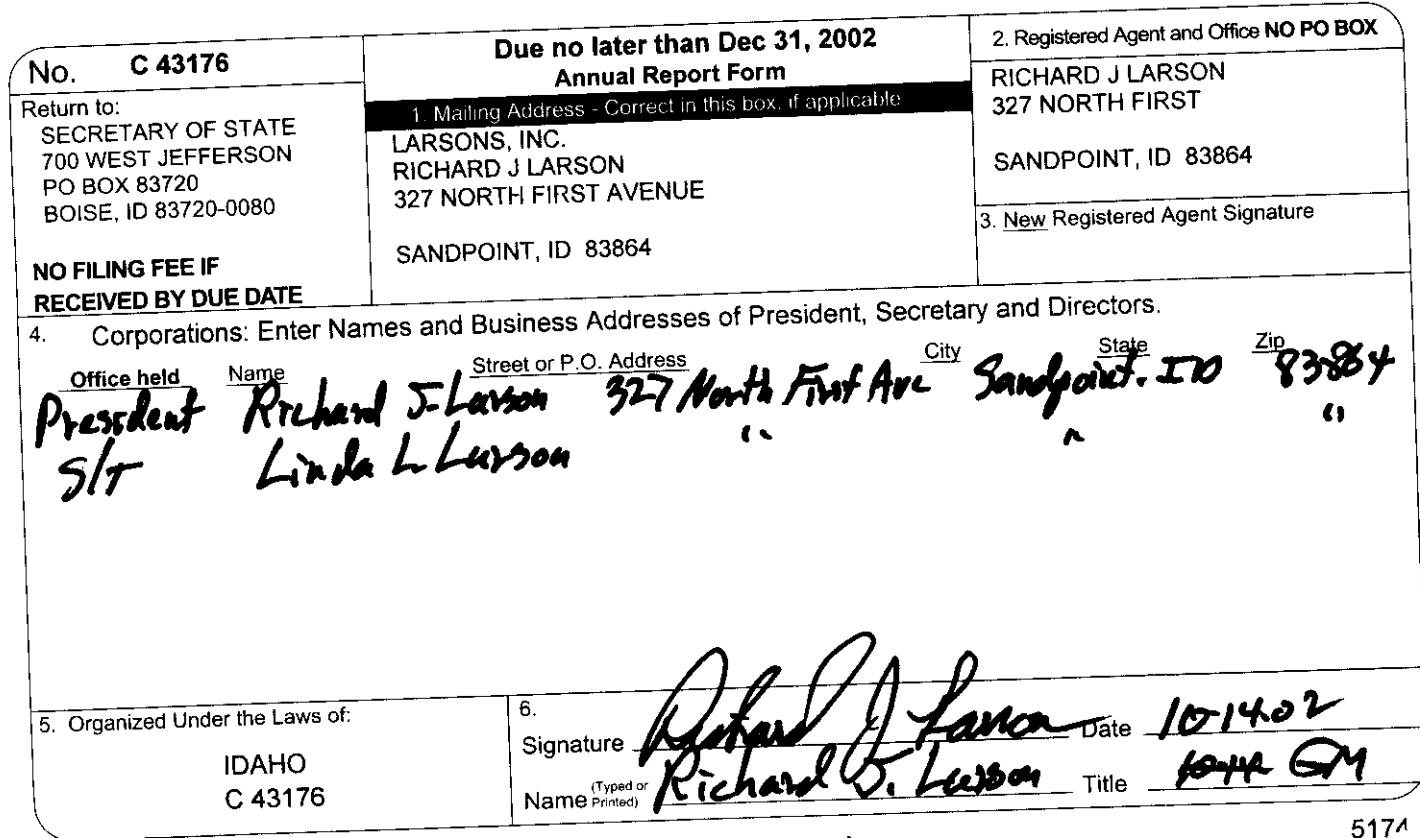 No. C 43176
Return to:
SECRETARY OF STATE
700 WEST JEFFERSON
PO BOX 83720
BOISE, ID 83720-0080
NO FILING FEE IF
RECEIVED BY DUE DATE
Due no later than Dec 31, 2002
Annual Report Form
1. Mailing Address - Correct in this box, if applicable
LARSONS, INC.
RICHARD J LARSON
327 NORTH FIRST AVENUE
SANDPOINT, ID 83864
2. Registered Agent and Office NO PO BOX
RICHARD J LARSON
327 NORTH FIRST
SANDPOINT, ID 83864
3. New Registered Agent Signature
4. Corporations: Enter Names and Business Addresses of President, Secretary and Directors.
Office held Name Street or P.O. Address City State Zip
President Richard J. Larson 327 North First Ave Sandpoint. ID 83864
S/T Linda L Larson " " "
5. Organized Under the Laws of:
IDAHO
C 43176
6.
Signature Richard J Larson Date 10-14-02
Name (Typed or Printed) Richard J. Larson Title GM